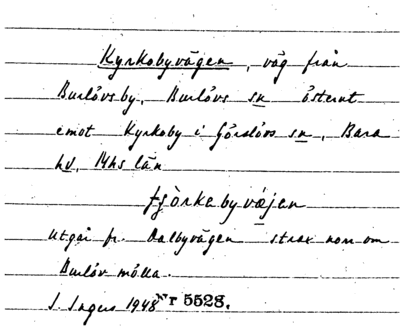 Kyrkobyvägen, väg från
Burlövsby, Burlövs sn österut
emot Kyrkoby i Görslövs sn, Bara
hd, Mhs län
tjörkebyväjen
utgår fr. Dalbyvägen strax norr om
Burlöv mölla.
I. Ingers 1948 Nr 5528.